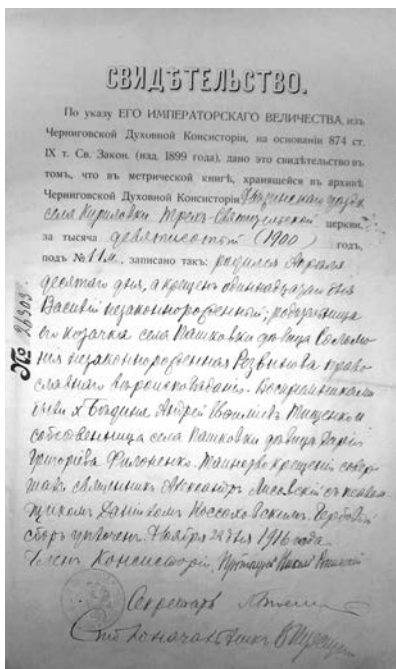 СВИДѢТЕЛЬСТВО.
По указу ЕГО ИМПЕРАТОРСКАГО ВЕЛИЧЕСТВА, изъ
Черниговской Духовной Консисторіи, на основаніи 874 ст.
IX т. Св. Закон. (изд. 1899 года), дано это свидѣтельство въ
томъ, что въ метрической книгѣ, хранящейся въ архивѣ
Черниговской Духовной Консисторіи уѣзда
села Кириловки Трехъ-Святительской церкви,
за тысяча девятисотый (1900) годъ,
подъ № 11 м., записано такъ: родился Апрѣля
десятаго дня, а крещенъ одиннадцатаго дня
Василій незаконнорожденный; родительница
его козачка села Пашковки дѣвица Соломо-
нія незаконнорожденная право-
славнаго вѣроисповѣданія. Воспріемниками
были: Андрей Тищенко и
собственница села Пашковки дѣвица Дарія
Григоріева Филоненко. Таинство крещенія совер-
шалъ священникъ Александръ Лисевскій съ псалом-
щикомъ Даніиломъ Гербовый
сборъ уплоченъ. Ноября 28 дня 1916 года.
Членъ Консисторіи, Протоіерей Николай
Секретарь
Столоначальникъ
№ 28303